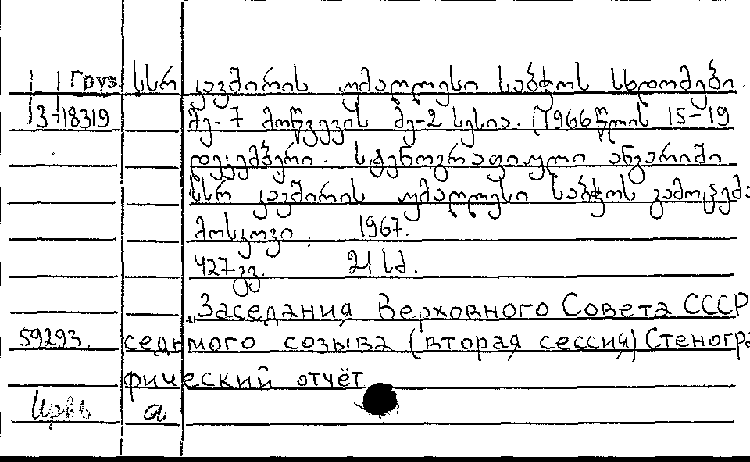 Груз სსრ კავშირის უმაღლესი საბჭოს სხდომები.
3-18319 მე-7 მოწვევის მე-2 სესია. 1966 წლის 15-19
დეკემბერი. სტენოგრაფიული ანგარიში
სსრ კავშირის უმაღლესი საბჭოს გამოცემა
მოსკოვი 1967.
427 გვ. 21 სმ.
Заседания Верховного Совета СССР
59293. седьмого созыва (вторая сессия) Стеногра
фический отчёт
a